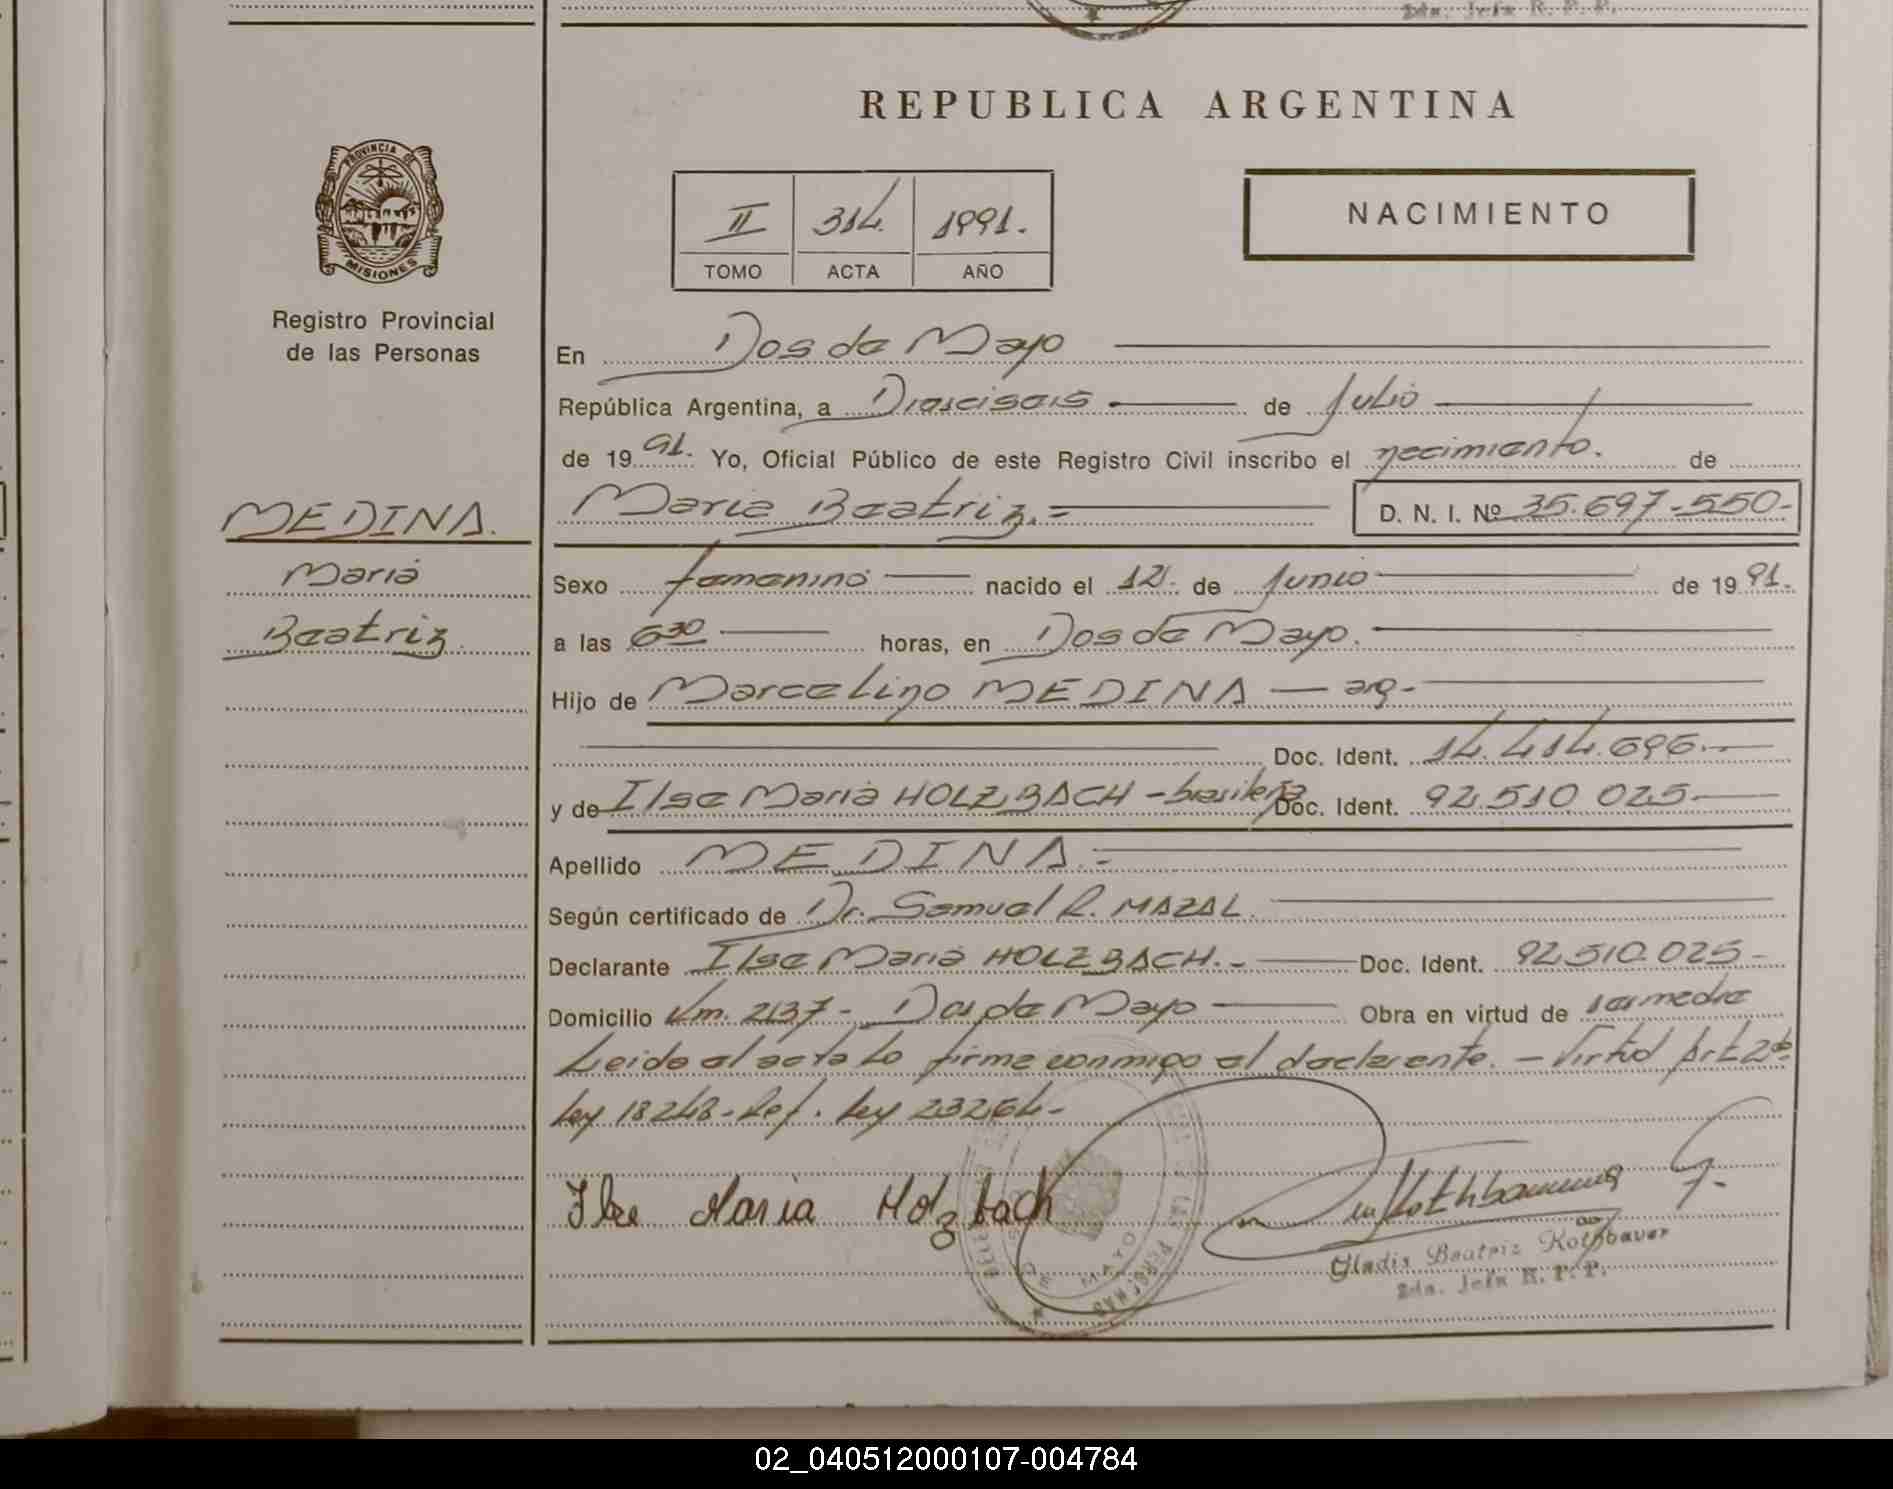 2da. Jefa R. P. P.
REPUBLICA ARGENTINA
PROVINCIA DE
MISIONES
Registro Provincial
de las Personas
II 314. 1991.
TOMO ACTA AÑO
NACIMIENTO
MEDINA.
Maria
Beatriz.
En Dos de Mayo
República Argentina, a Dieciseis de Julio
de 1991. Yo, Oficial Público de este Registro Civil inscribo el nacimiento. de
Maria Beatriz.= D. N. I. Nº 35.697.550-
Sexo femenino nacido el 12. de Junio de 1991.
a las 6 30 horas, en Dos de Mayo.
Hijo de Marcelino MEDINA — arg-
Doc. Ident. 14.414.696.-
y de Ilse Maria HOLZBACH - brasileña Doc. Ident. 92.510.025-
Apellido MEDINA.-
Según certificado de Dr. Samuel R. MAZAL.
Declarante Ilse Maria HOLZBACH.- Doc. Ident. 92.510.025-
Domicilio Km. 237- Dos de Mayo Obra en virtud de ser madre
Leida el acta lo firma conmigo el declarante. - Virtud Art 2do
Ley 18248- Ref. Ley 23264-
Ilse Maria Holzbach
DE MAYO
Gladis Beatriz Rothbauer
2da. Jefa R. P. P.
02_040512000107-004784